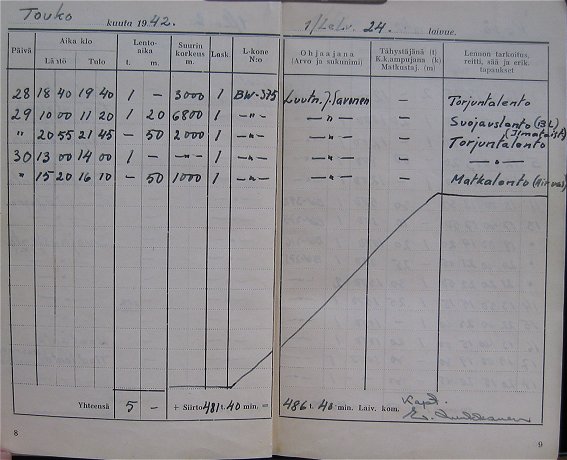 Touko kuuta 1942. 1/LeLv. 24. laivue.
Päivä Aika klo Lento-aika Suurin korkeus m Lask L-kone N:o Ohjaajana (Arvo ja sukunimi) Tähystäjänä (t) K.k.ampujana (k) Matkustaj. (m) Lennon tarkoitus, reitti, sää ja erik. tapaukset
Lähtö Tulo t. m.
28 18 40 19 40 1 – 3000 1 BW-375 Luutn. J. Savonen – Torjuntalento
29 10 00 11 20 1 20 6800 1 -"- -"- – Suojauslento (BL) (Ilmataist)
" 20 55 21 45 – 50 2000 1 -"- -"- – Torjuntalento
30 13 00 14 00 1 – -"- 1 -"- -"- – -"-
" 15 20 16 10 – 50 1000 1 -"- -"- – Matkalento
Yhteensä 5 – + Siirto 481 t. 40 min. = 486 t. 40 min. Laiv. kom. Kapt.
8 9